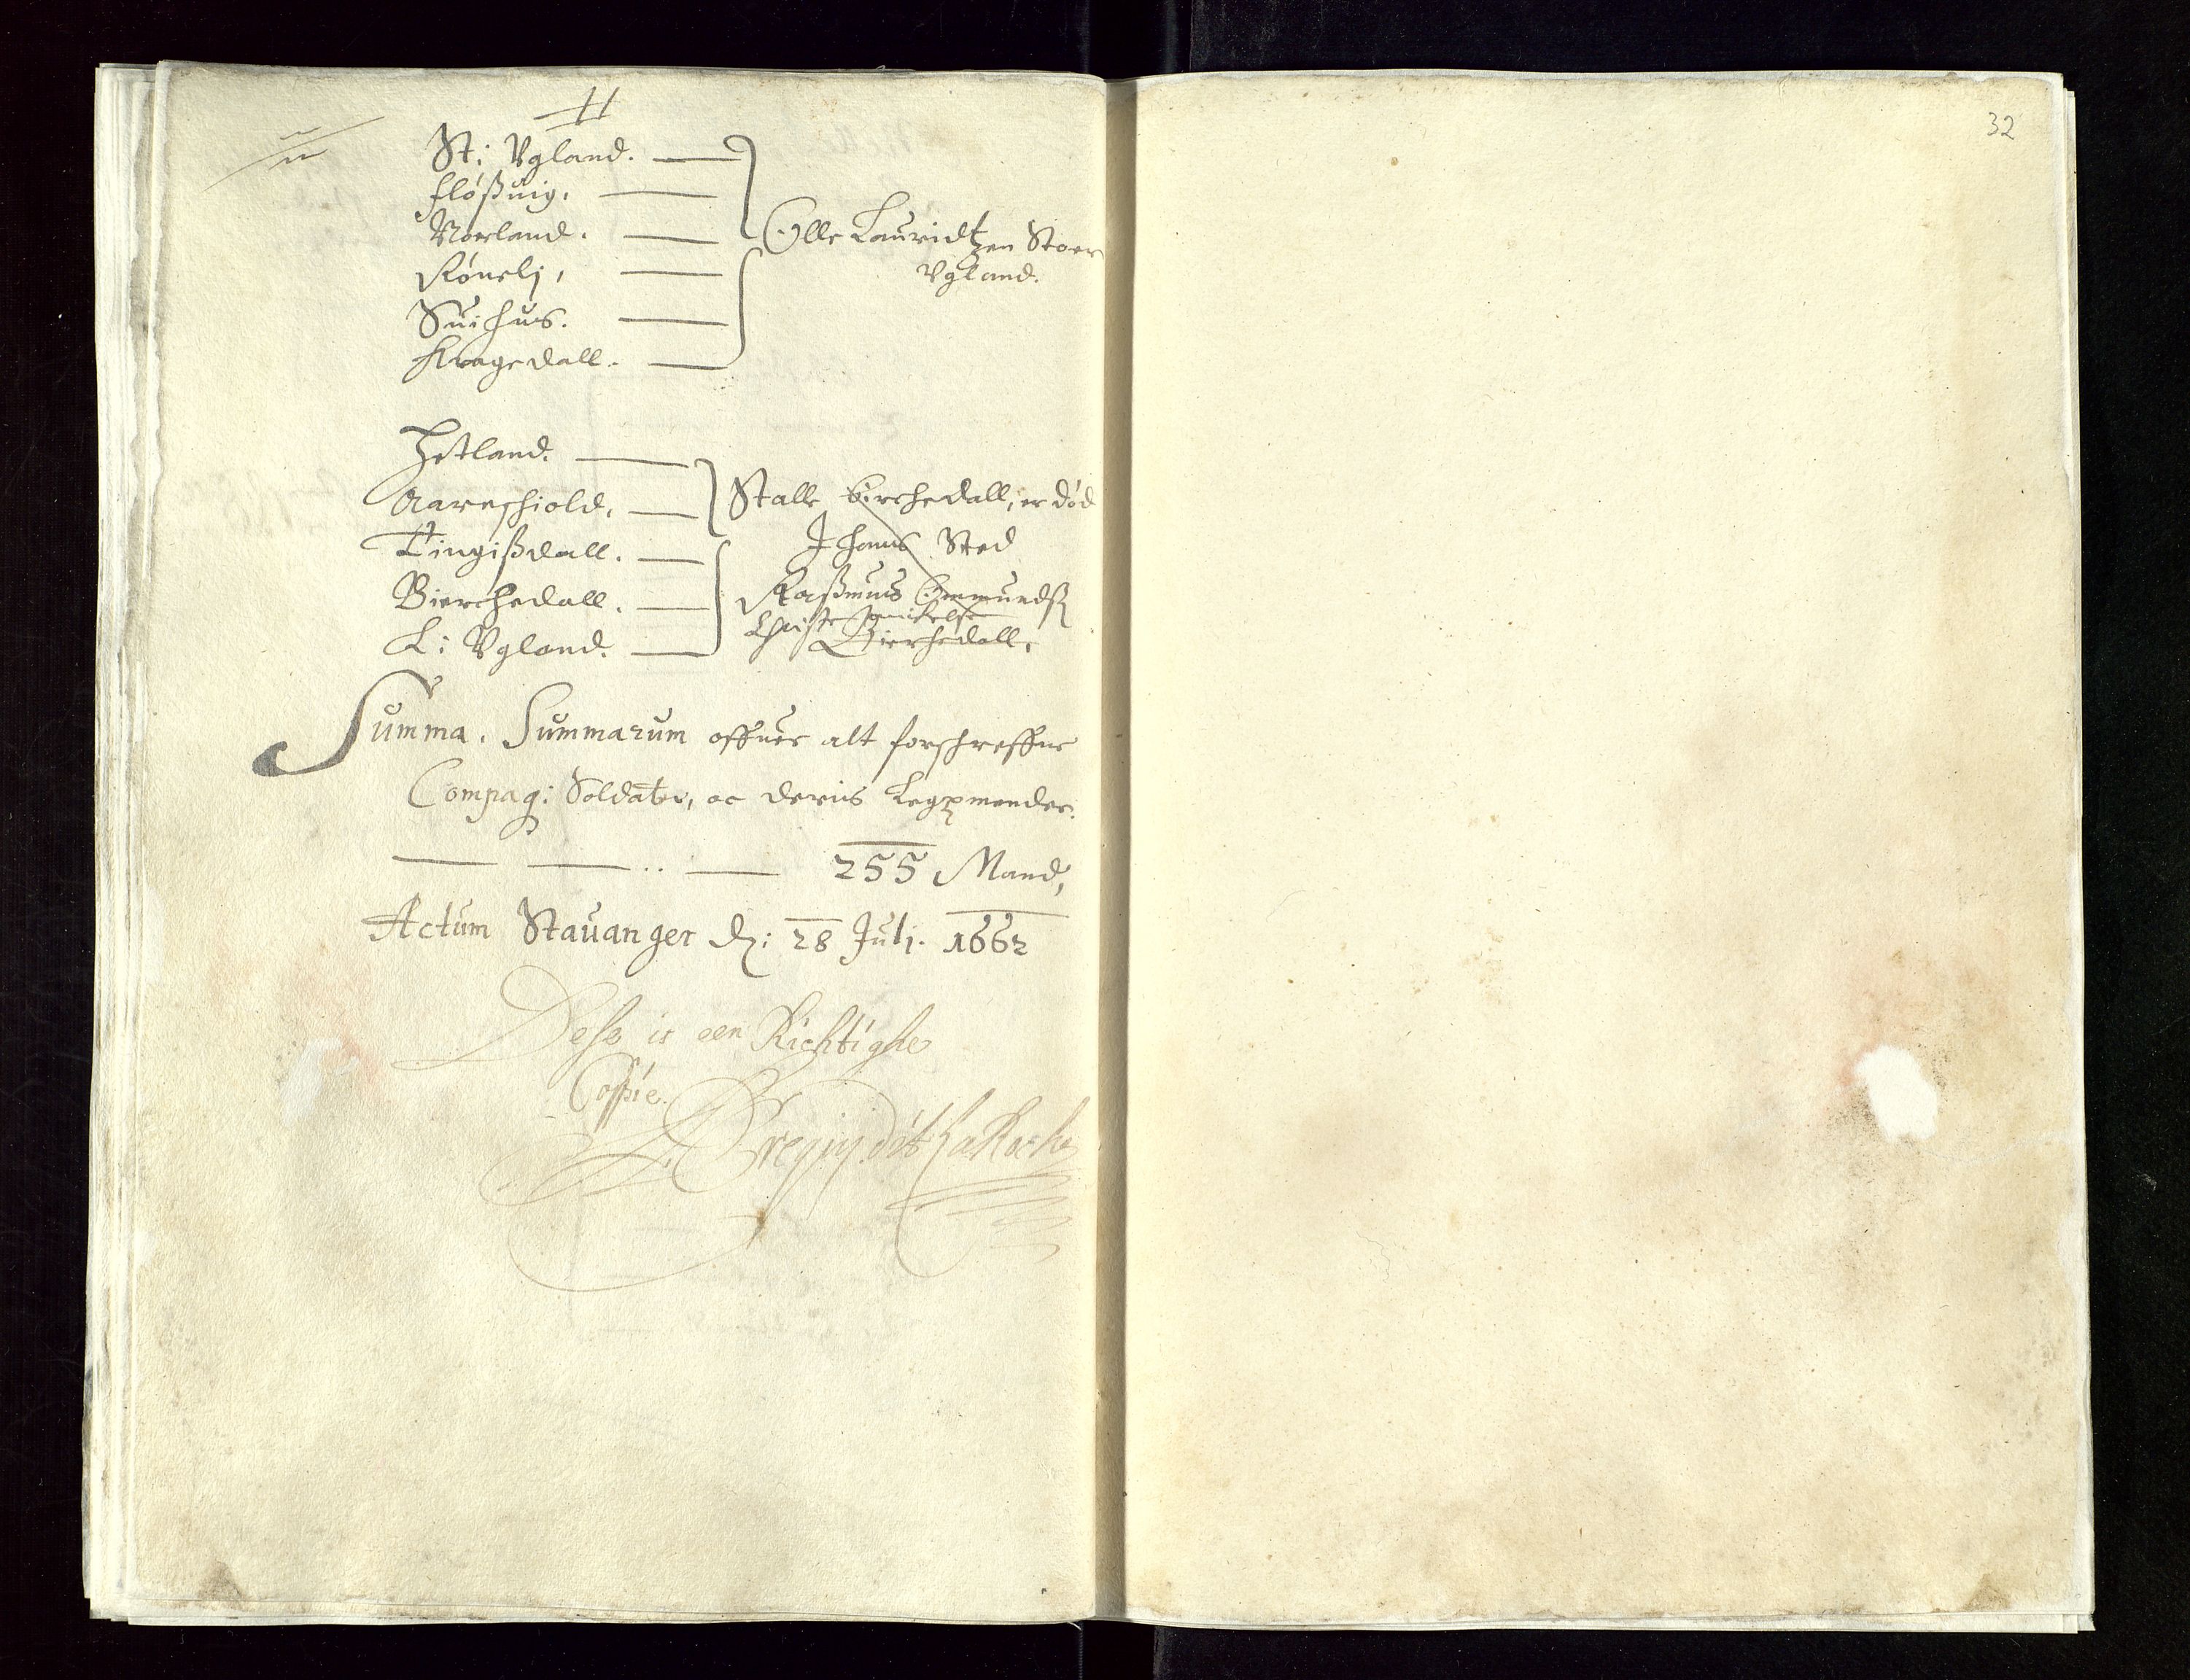 St: Vgland.
flößuig.
Norland.
Rönelj,
Suihus.
Kragedall.
Olle Lauridtzen Stoer
Vgland.
Hetland.
Aareschiold,
Tingißdall.
Bierchedall.
L: Vgland.
Stalle Birchedall, er död
I hans Sted
Raßmus Ommundß
Christe
Bierhedall.
Summa. Summarum offuer alt forschreffne
Compag: Soldater, oc deris Legzmender.
255 Mand,
Actum Stauanger dz: 28 Julj. 1662
Dese is een Richtighe
Coppie.
32